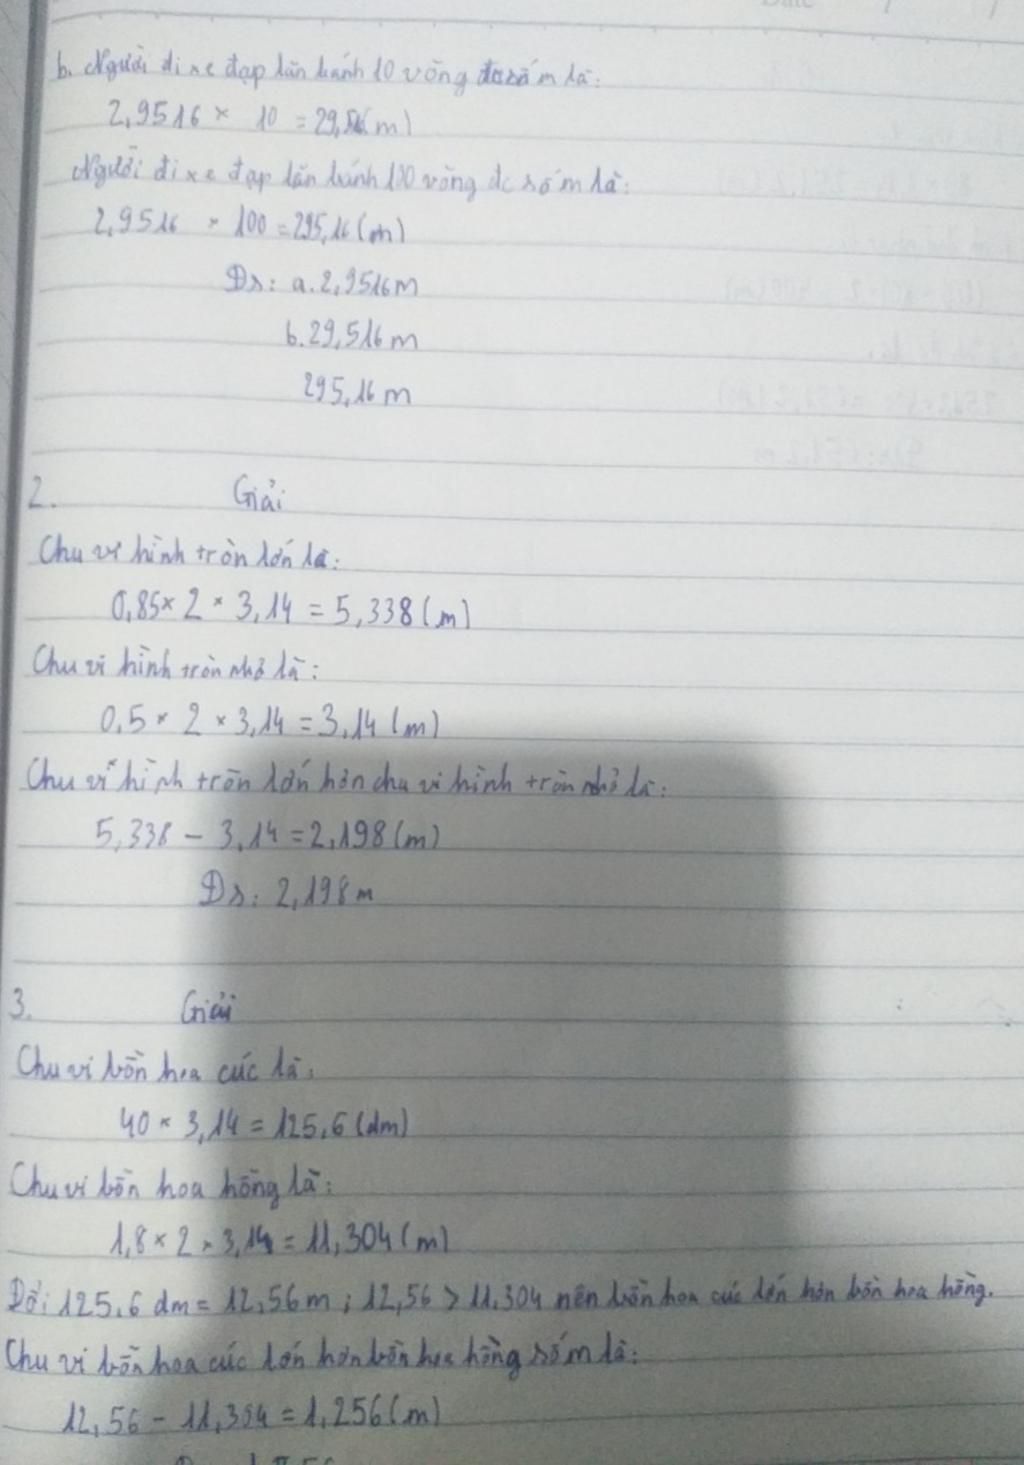 b. Người đi xe đạp lăn bánh 10 vòng được số m là:
2,9516 × 10 = 29,516(m)
Người đi xe đạp lăn bánh 100 vòng đc số m là:
2,9516 × 100 = 295,16(m)
Đs: a. 2,9516m
b. 29,516m
295,16m
2. Giải
Chu vi hình tròn lớn là:
0,85 × 2 × 3,14 = 5,338(m)
Chu vi hình tròn nhỏ là:
0,5 × 2 × 3,14 = 3,14(m)
Chu vi hình tròn lớn hơn chu vi hình tròn nhỏ là:
5,338 - 3,14 = 2,198(m)
Đs: 2,198m
3. Giải
Chu vi bồn hoa cúc là:
40 × 3,14 = 125,6(dm)
Chu vi bồn hoa hồng là:
1,8 × 2 × 3,14 = 11,304(m)
Đổi: 125,6 dm = 12,56m; 12,56 > 11,304 nên bồn hoa cúc lớn hơn bồn hoa hồng.
Chu vi bồn hoa cúc lớn hơn bồn hoa hồng số m là:
12,56 - 11,304 = 1,256(m)